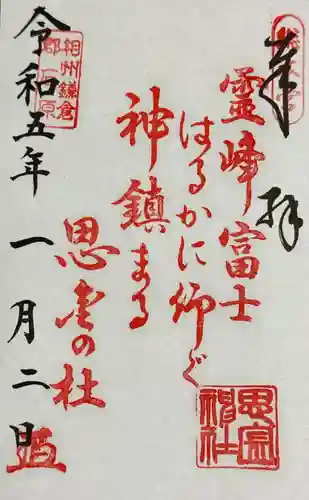 奉拝
霊峰富士
はるかに仰ぐ
神鎮まる
思金の杜
令和五年一月二日
相州鎌倉
郡一之原
思金
神社